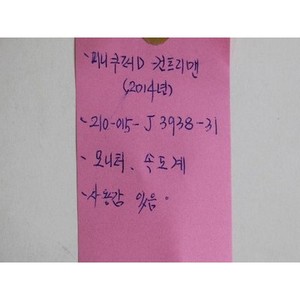 · 미니쿠퍼D 컨트리맨
(2014년)
· 210-015-J3938-31
· 모니터. 속도계
· 사용감 있음.